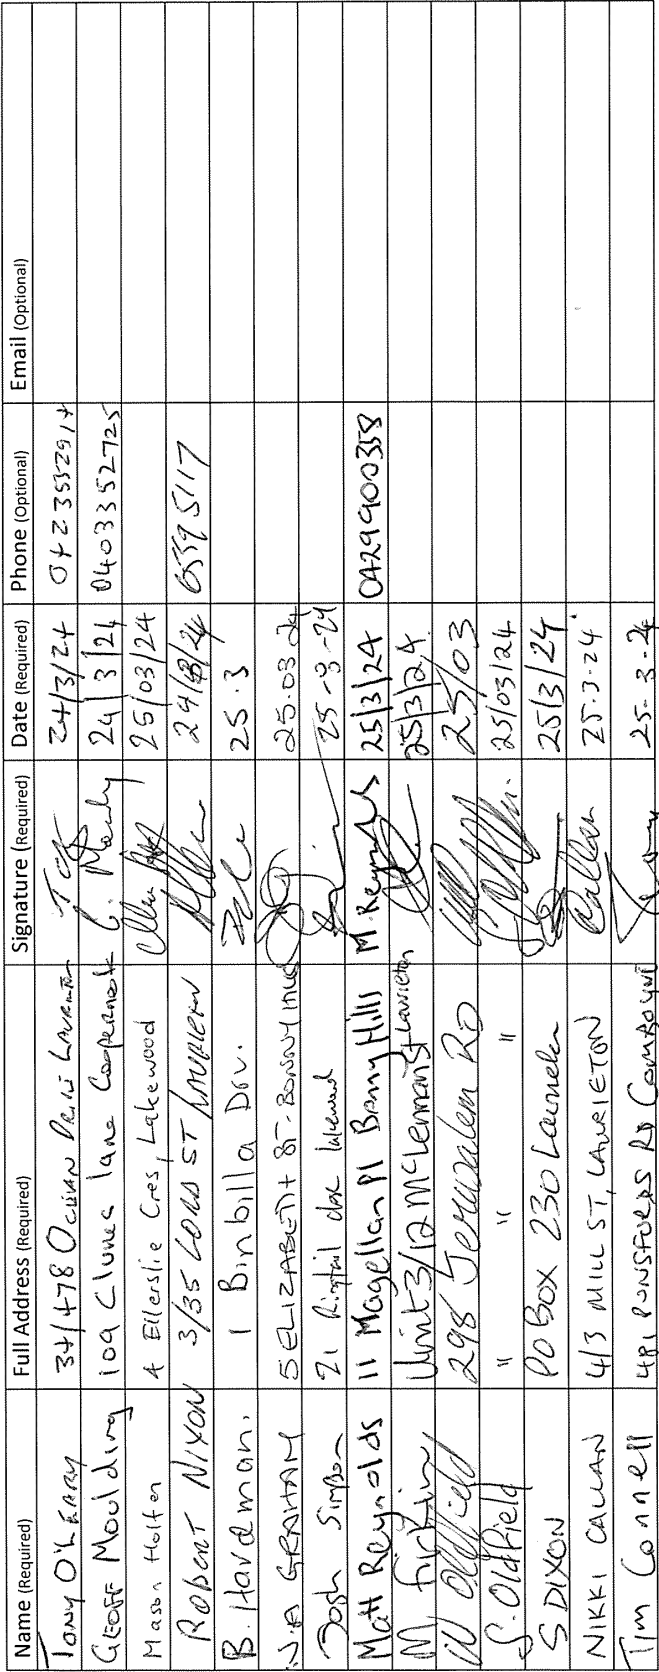 Name (Required) Full Address (Required) Signature (Required) Date (Required) Phone (Optional) Email (Optional)
TONY O'LEARY 34/478 OCEAN DRIVE LAURIETON 24/3/24
GEOFF Moulding 109 Clunes lane Coopernook 24/3/24 0403352725
Mason Holten 4 Ellerslie Cres, Lakewood 25/03/24
ROBERT NIXON 3/35 LORD ST LAURIETON 24/3/24 65595117
B. Hardman. 1 Binbilla Drv. 25.3
GRAHAM 5 ELIZABETH ST. BONNY HILLS 25.03.24
Josh Simpson 21 Ringtail close lakewood 25-3-24
Matt Reynolds 11 Magellan Pl Bonny Hills M Reynolds 25/3/24 0429900358
M Firkin Unit 3/12 McLennan St Laurieton 25/3/24
W Oldfield 298 Jerusalem RD 25/03
S. Oldfield " " " 25/03/24
S DIXON PO BOX 230 Laurieton 25/3/24
NIKKI CALLAN 4/3 MILL ST, LAURIETON Callan 25.3.24
Tim Connell 481 PONSFORDS RD COMBOYNE 25-3-24